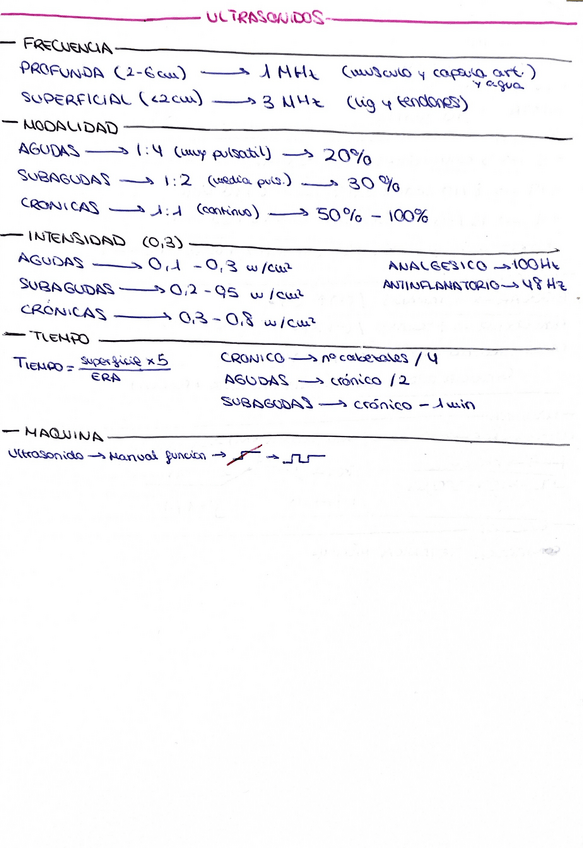 ULTRASONIDOS
- FRECUENCIA
PROFUNDA (2-6cm) → 1 MHz (musculo y capsula art.)
y agua
SUPERFICIAL (<2cm) → 3 MHz (lig y tendones)
- MODALIDAD
AGUDAS → 1:4 (muy pulsatil) → 20%
SUBAGUDAS → 1:2 (media puls.) → 30%
CRONICAS → 1:1 (continuo) → 50% - 100%
- INTENSIDAD (0,3)
AGUDAS → 0,1 - 0,3 w/cm² ANALGESICO → 100Hz
SUBAGUDAS → 0,2 - 0,5 w/cm² ANTIINFLANATORIO → 48 HZ
CRÓNICAS → 0,3 - 0,8 w/cm²
- TIEMPO
TIEMPO = superficie x 5 / ERA CRONICO → nº cabezales / 4
AGUDAS → crónico / 2
SUBAGUDAS → crónico - 1 min
- MAQUINA
Ultrasonido → Manual funcion → →